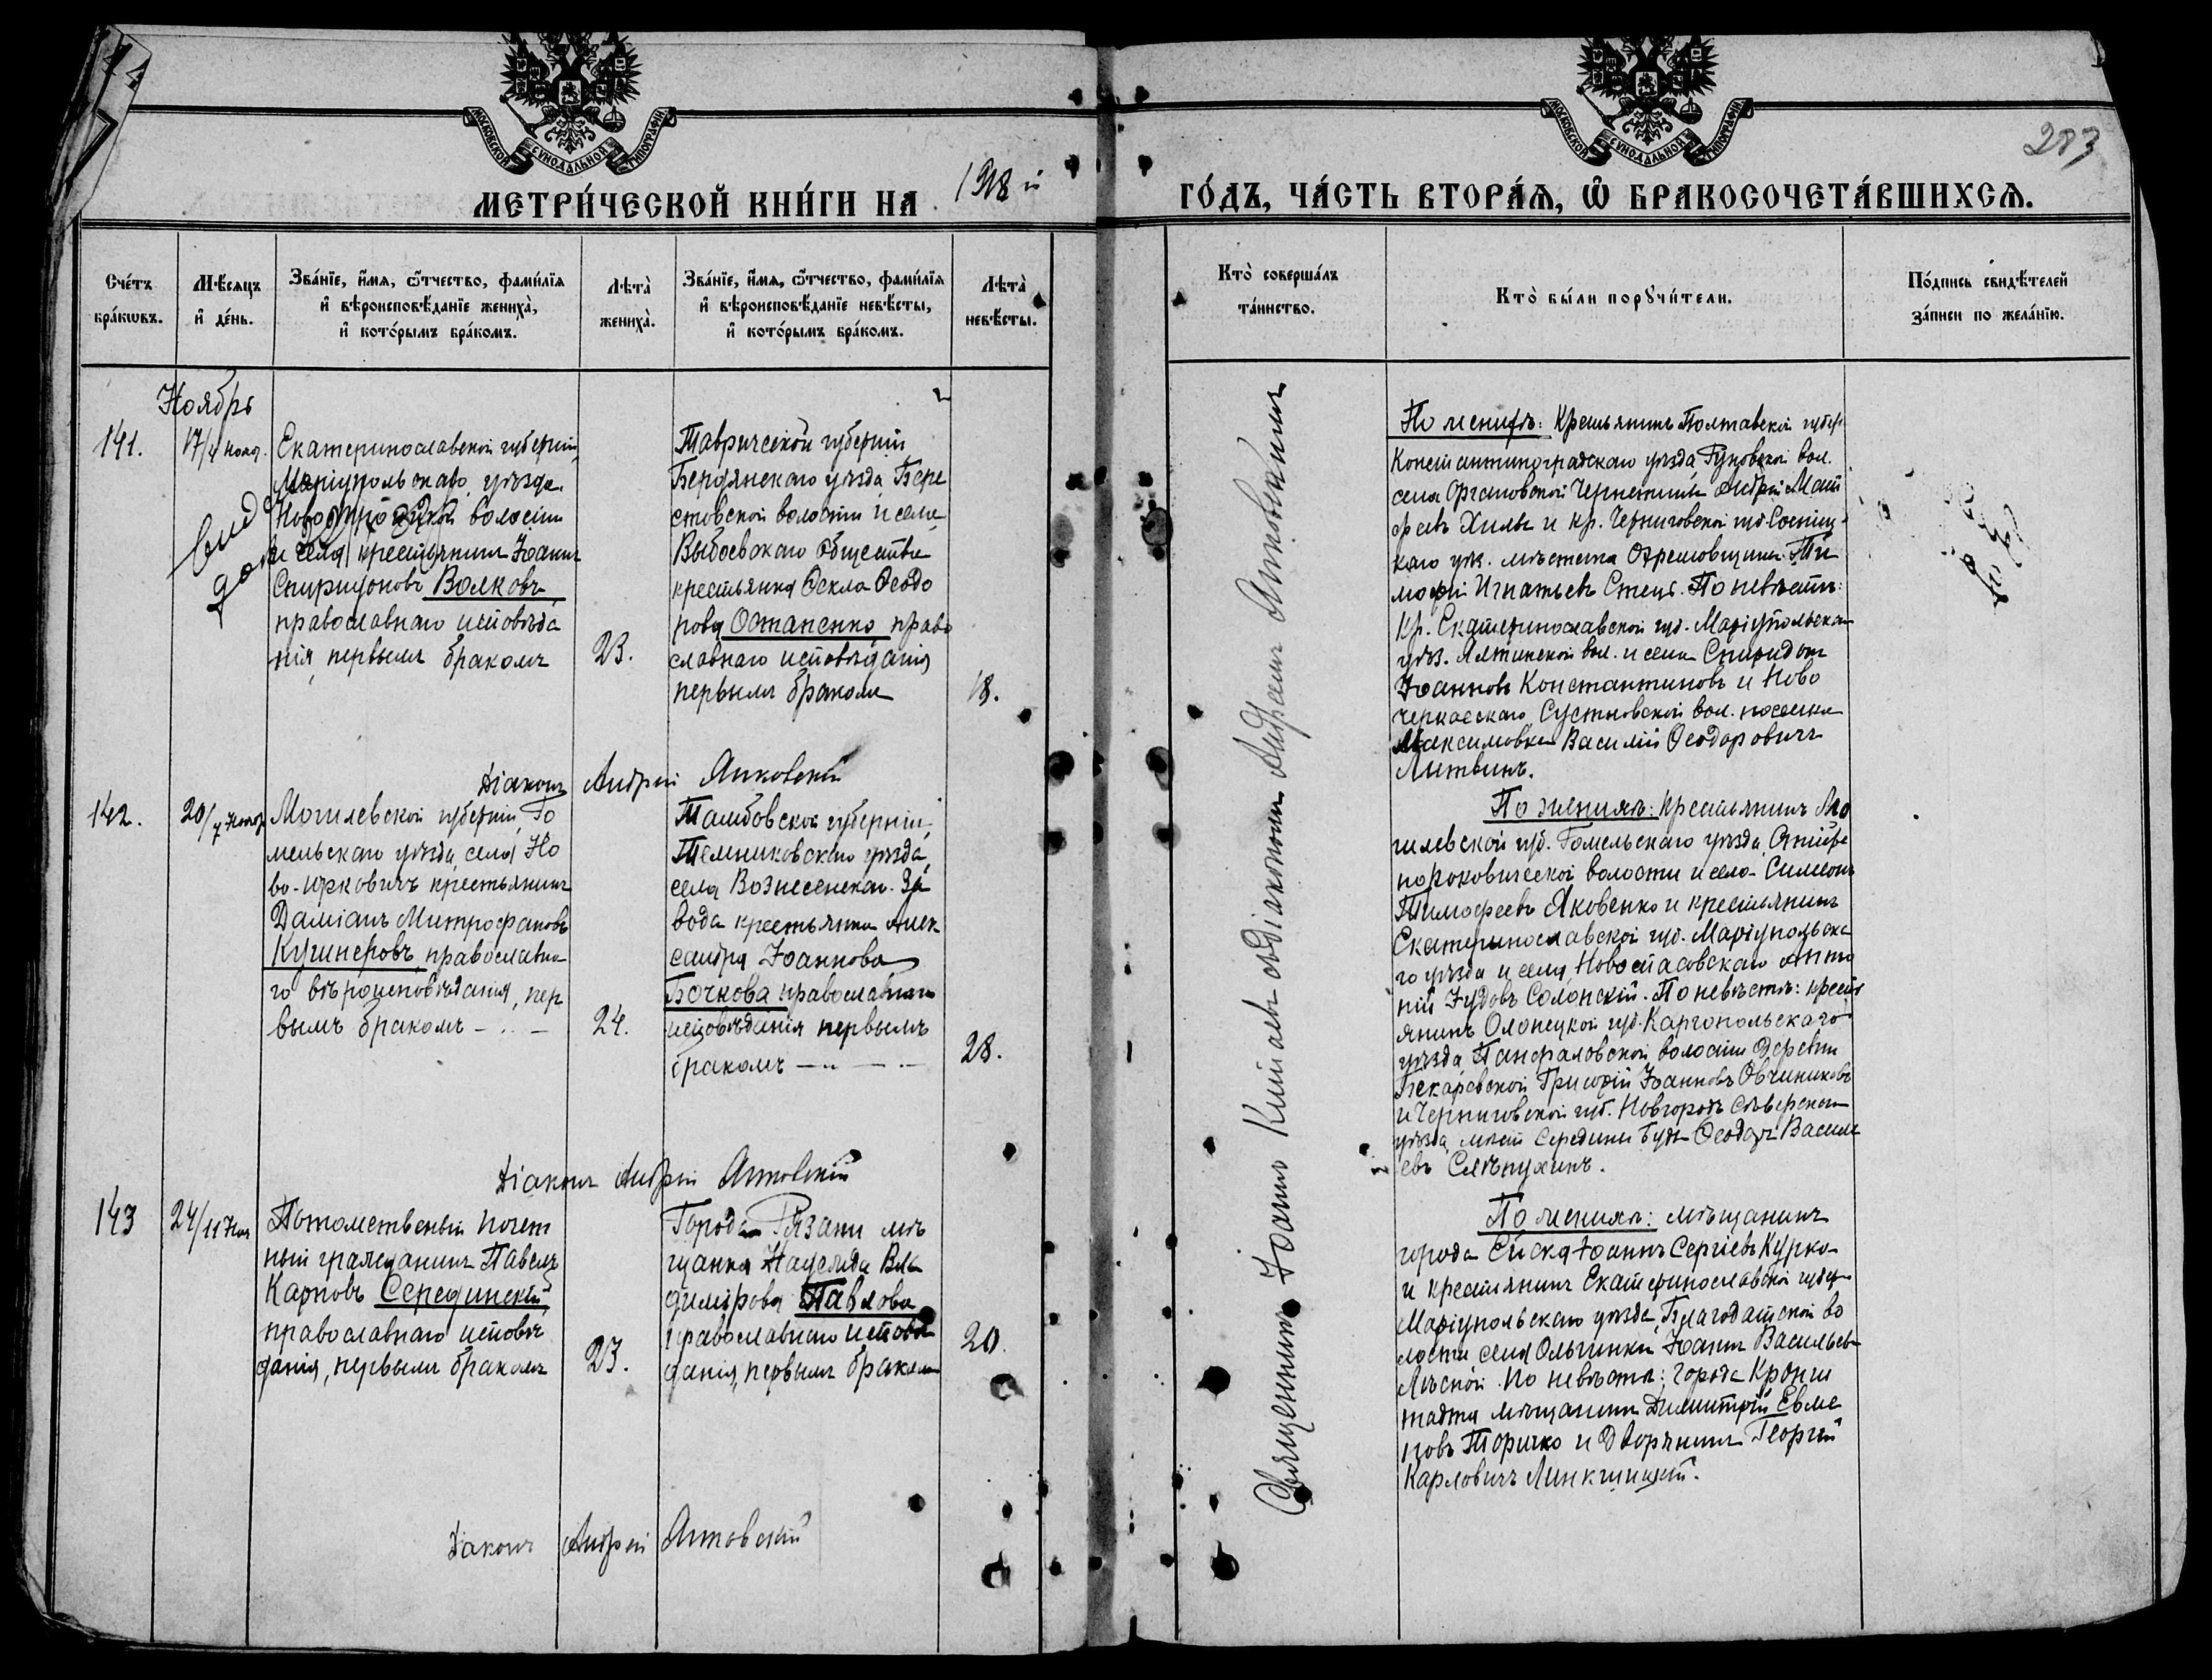 МОСКОВСКОЙ СѴНОДАЛЬНОЙ ТИПОГРАФІИ
МОСКОВСКОЙ СѴНОДАЛЬНОЙ ТИПОГРАФІИ
283
МЕТРИ́ЧЕСКОЙ КНИ́ГИ НА 1918 й ГО́ДЪ, ЧА́СТЬ ВТОРА́Ѧ, Ѽ БРАКОСОЧЕТА́ВШИХСѦ.
Сче́тъ
бра́кѡвъ.
Мѣ́сяцъ
и҆ де́нь.
Зва́нїе, и҆́мя, ѻ҆́тчество, фами́лїя
и҆ вѣроисповѣ́данїе жениха̀,
и҆ кото́рымъ бра́комъ.
Лѣта̀
жениха̀.
Зва́нїе, и҆́мя, ѻ҆́тчество, фами́лїя
и҆ вѣроисповѣ́данїе невѣ́сты,
и҆ кото́рымъ бра́комъ.
Лѣта̀
невѣ́сты.
Кто̀ соверша́лъ
та́инство.
Кто̀ бы́ли порꙋчи́тели.
По́дпись свидѣ́телей
за́писи по жела́нїю.
Ноябрь
141.
17/4 нояб.
Екатеринославской губерніи,
Маріупольскаго уѣзда
Новотроицкой волости
и села, крестьянинъ Іоаннъ
Спиридоновъ Волковъ,
православнаго исповѣда
нія, первымъ бракомъ
23.
Таврической губерніи,
Бердянскаго уѣзда, Бере
стовской волости и села,
общества
крестьянка Ѳекла Ѳеодо
рова Остапенко, право
славнаго исповѣданія
первымъ бракомъ
18.
По женихѣ: Крестьянинъ Полтавской губер.
Константиноградскаго уѣзда вол.
села Андрей Мат
фіевъ Хиль и кр. Черниговской губ. Сосниц
каго уѣз. мѣстечка Ти
мофей Игнатьевъ По невѣстѣ:
Кр. Екатеринославской губ. Маріупольскаго
уѣз. Ялтинской вол. и села Спиридонъ
Іоанновъ Константиновъ и Ново
черкасскаго вол. поселка
Максимовка Василій Ѳеодоровичъ
Литвинъ.
Діаконъ Андрей Ятковскій
142.
20/7 нояб
Могилевской губерніи, Го
мельскаго уѣзда, села Но
во-Юрковичъ крестьянинъ
Даміанъ Митрофановъ
Кушнеровъ, православна
го вѣроисповѣданія, пер
вымъ бракомъ
24.
Тамбовской губерніи,
Темниковскаго уѣзда,
села Вознесенскаго За
вода крестьянка Алек
сандра Іоаннова
Бочкова православнаго
исповѣданія первымъ
бракомъ
28.
По женихѣ: крестьянинъ Мо
гилевской губ. Гомельскаго уѣзда,
волости и села Симеонъ
Тимофеевъ Яковенко и крестьянинъ
Екатеринославской губ. Маріупольска
го уѣзда и села Новоспасовскаго Анто
ній Іудовъ Солонскій. По невѣстѣ: крест
янинъ Олонецкой губ. Каргопольскаго
уѣзда, Панфиловской волости деревни
Григорій Іоанновъ Овчинниковъ
и Черниговской губ. Новгородъ Сѣверскаго
уѣзда, мѣст Середины Буды Ѳеодоръ Василь
евъ Слѣпухинъ.
Діаконъ Андрей Ятковскій
143
24/11 ноя
Потомственный почет
ный гражданинъ Павелъ
Карповъ Серединскій,
православнаго исповѣ
данія, первымъ бракомъ
23.
Города Рязани мѣ
щанка Надежда Вла
димірова Павлова
православнаго исповѣ
данія, первымъ бракомъ
20.
По женихѣ: мѣщанинъ
города Ейска Іоаннъ Сергіевъ Курко
и крестьянинъ Екатеринославской губер.
Маріупольскаго уѣзда, Благодатской во
лости села Ольгинки Іоаннъ Васильевъ
Лѣсной. По невѣстѣ: города Кронш
тадта мѣщанинъ Димитрій Евме
новъ Торичко и дворянинъ Георгій
Карловичъ
Діаконъ Андрей Ятковскій
Священникъ Іоаннъ Китаевъ съ діакономъ Андреемъ Ятковскимъ